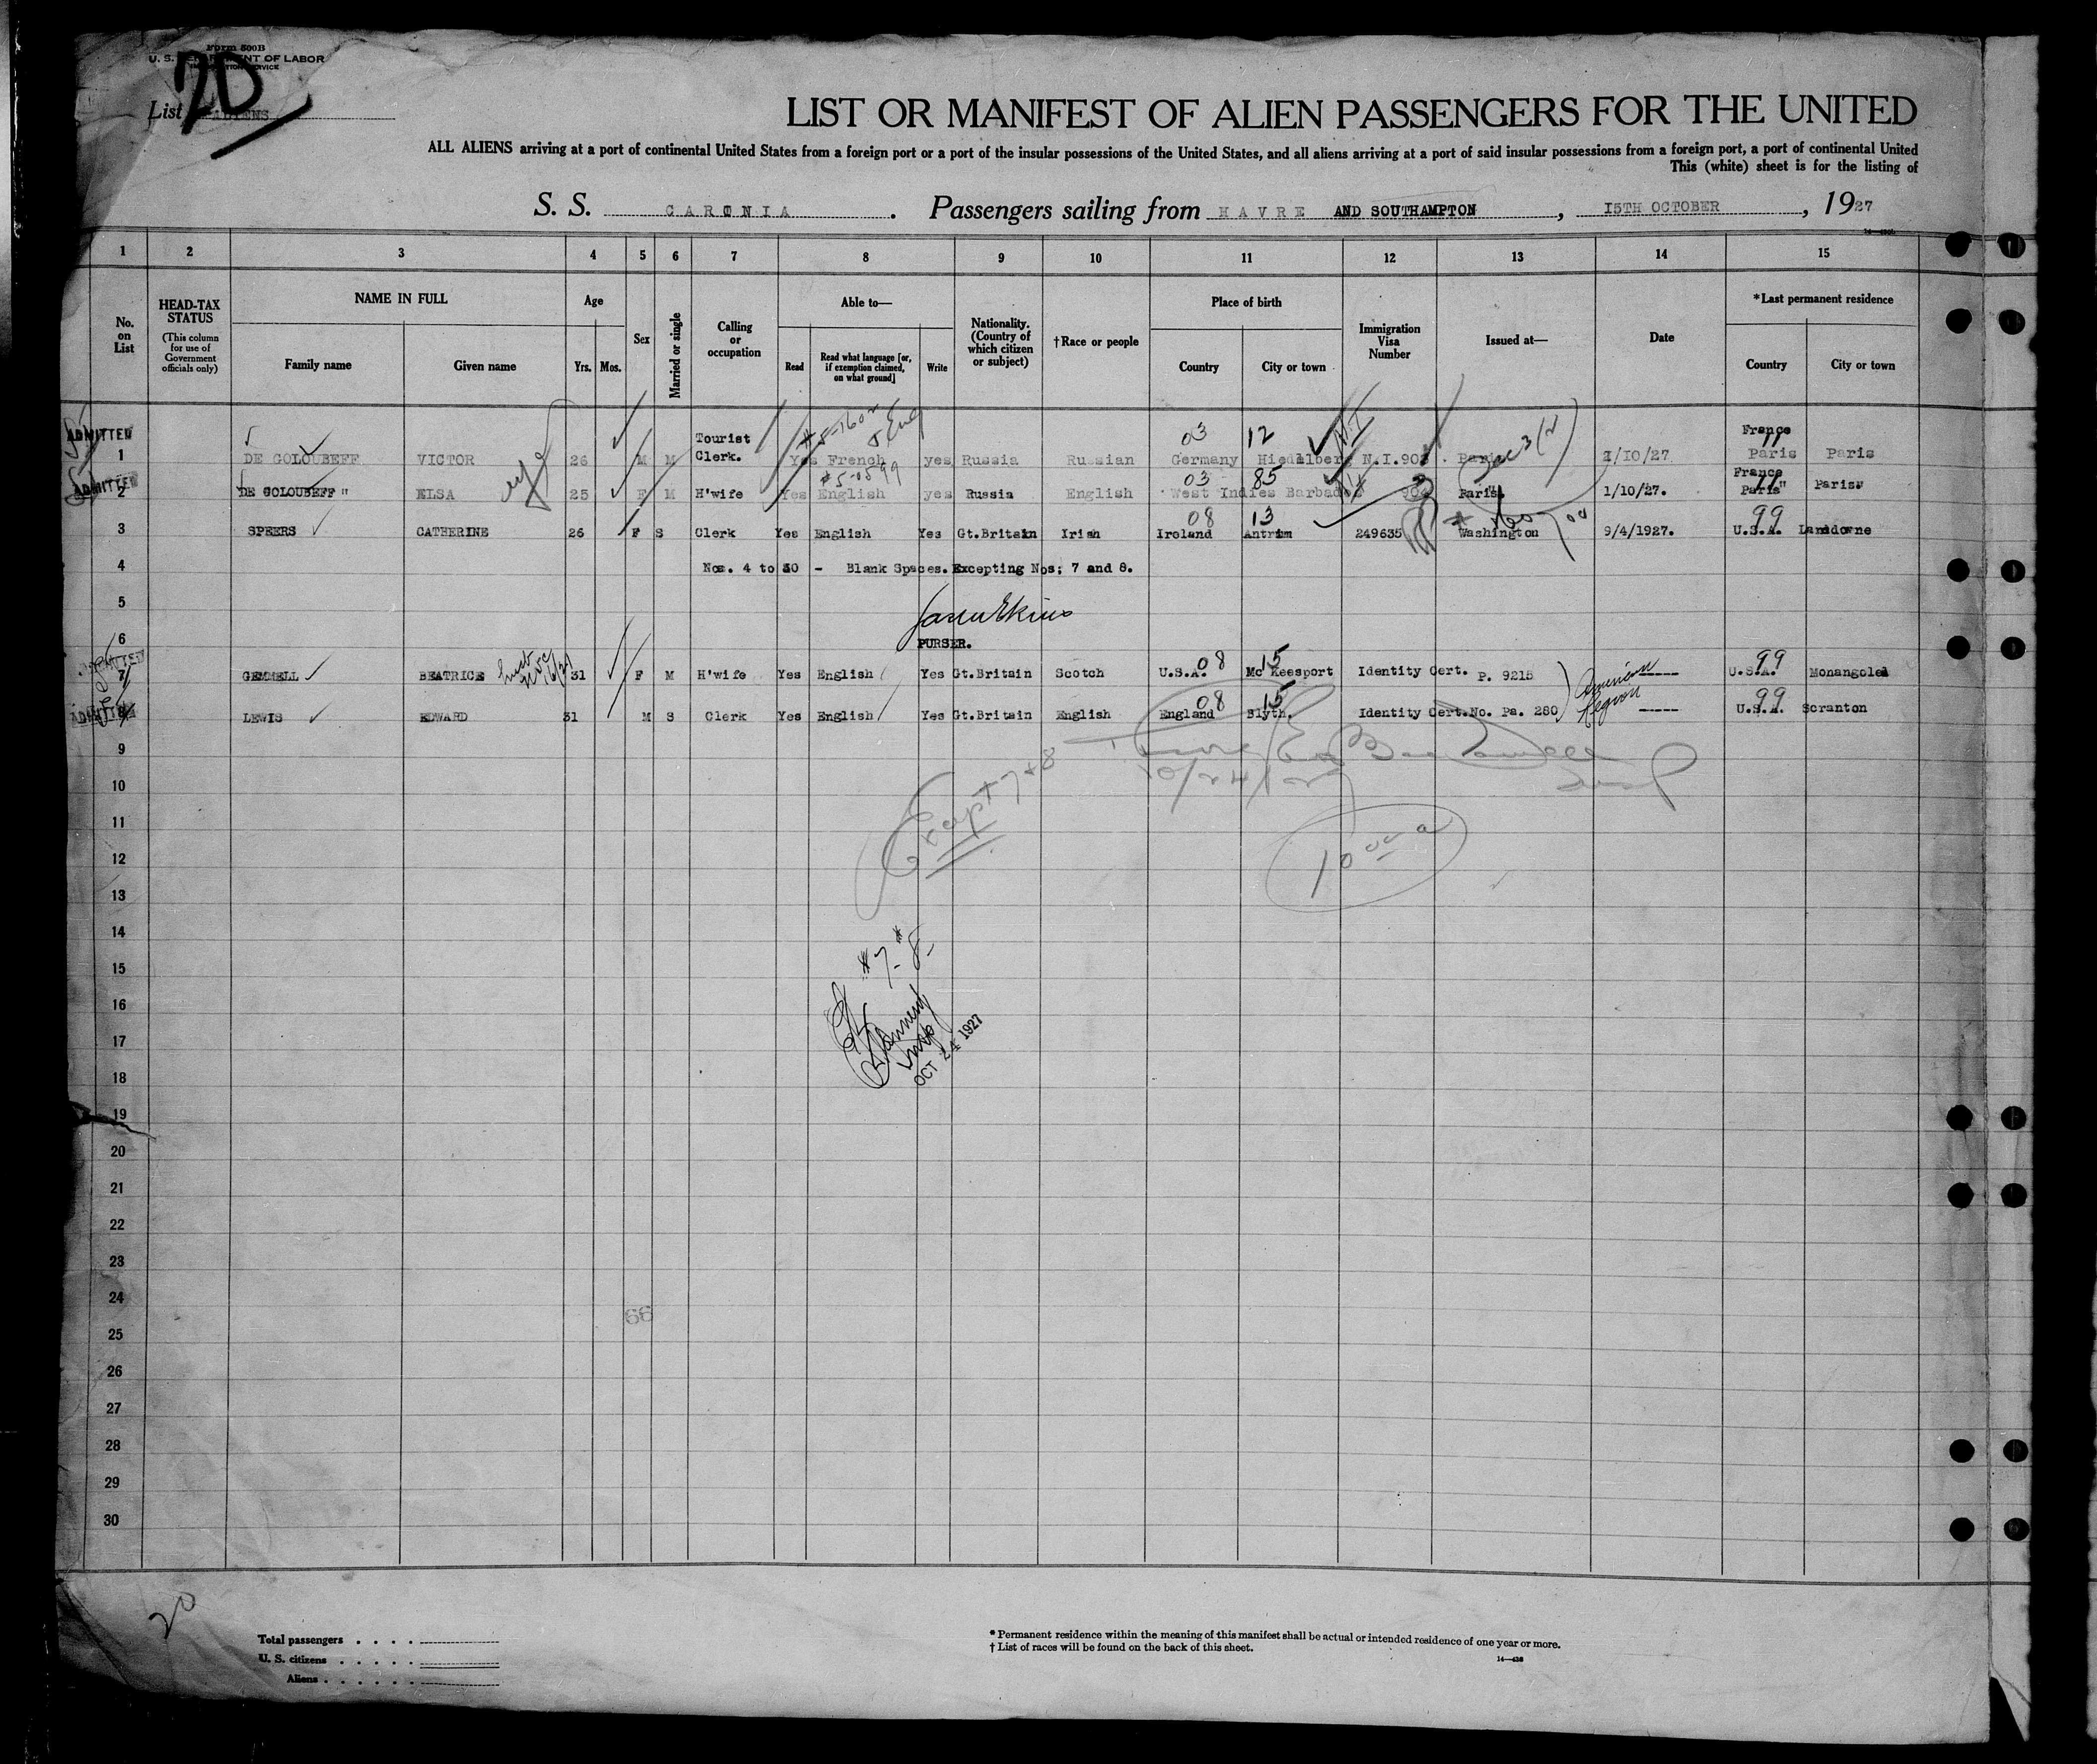 Form 500B
U. S. DEPARTMENT OF LABOR
IMMIGRATION SERVICE
20
List ALIENS
LIST OR MANIFEST OF ALIEN PASSENGERS FOR THE UNITED
ALL ALIENS arriving at a port of continental United States from a foreign port or a port of the insular possessions of the United States, and all aliens arriving at a port of said insular possessions from a foreign port, a port of continental United
This (white) sheet is for the listing of
S. S. CARONIA . Passengers sailing from HAVRE AND SOUTHAMPTON , 15TH OCTOBER , 1927
1 2 3 4 5 6 7 8 9 10 11 12 13 14 15
No. on List
HEAD-TAX STATUS
(This column for use of Government officials only)
NAME IN FULL
Family name Given name
Age
Yrs. Mos.
Sex
Married or single
Calling or occupation
Able to—
Read Read what language [or, if exemption claimed, on what ground] Write
Nationality. (Country of which citizen or subject)
†Race or people
Place of birth
Country City or town
Immigration Visa Number
Issued at—
Date
*Last permanent residence
Country City or town
ADMITTED 03 12 N.I France
Tourist
1 DE GOLOUBEFF VICTOR 26 M M Clerk. Yes French yes Russia Russian Germany Hiedelberg N.I.903 Paris 1/10/27 Paris Paris
ADMITTED 03 85 France
2 DE GOLOUBEFF " ELSA 25 F M H'wife Yes English yes Russia English West Indies Barbados 904 Paris. 1/10/27. Paris" Paris"
08 13 99
3 SPEERS CATHERINE 26 F S Clerk Yes English Yes Gt.Britain Irish Ireland Antrim 249635 Washington 9/4/1927. U.S.A. Lansdowne
4 Nos. 4 to 30 - Blank Spaces. Excepting Nos; 7 and 8.
5
6 PURSER.
ADMITTED 08 15 99
7 GEMMELL BEATRICE 31 F M H'wife Yes English Yes Gt.Britain Scotch U.S.A. Mc Keesport Identity Cert. P. 9215 American ----- U.S.A. Monangolea
ADMITTED 08 15 Legion 99
8 LEWIS EDWARD 31 M S Clerk Yes English Yes Gt.Britain English England Blyth. Identity Cert.No. Pa. 280 ----- U.S.A. Scranton
9
10 Except 7 & 8 10/24/1927
11
12 10 00 a
13
14
15 #7- #8-
16
17 Insp
OCT 24 1927
18
19
20
21
22
23
24
66
25
26
27
28
29
30
20
Total passengers . . . .
U. S. citizens . . . . .
Aliens . . . . . .
* Permanent residence within the meaning of this manifest shall be actual or intended residence of one year or more.
† List of races will be found on the back of this sheet.
14—438